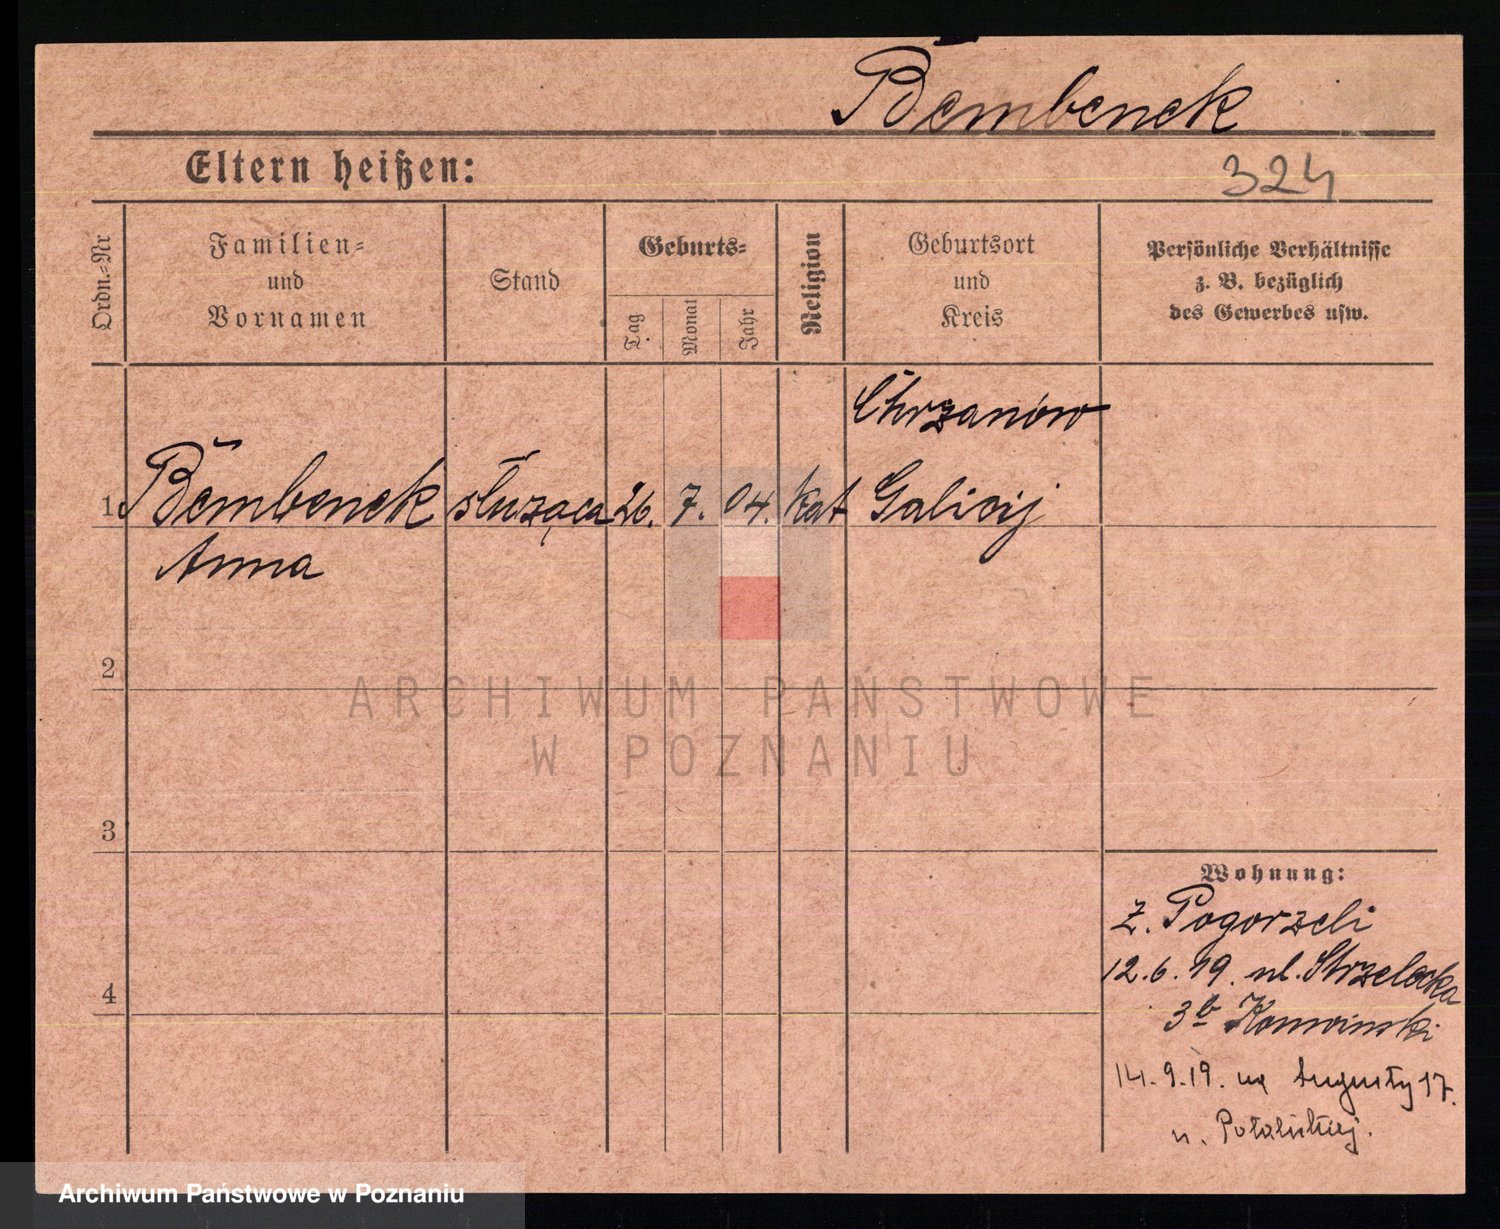 Bembenek
Eltern heißen:
324
Ordn.=Nr
Familien=
und
Vornamen
Stand
Geburts=
Tag
Monat
Jahr
Religion
Geburtsort
und
Kreis
Persönliche Verhältnisse
z. B. bezüglich
des Gewerbes usw.
Chrzanów
1 Bembenek służąca 26. 7. 04. kat Galicij
Anna
2
ARCHIWUM PAŃSTWOWE
W POZNANIU
3
Wohnung:
z. Pogorzeli
12.6.19. ul. Strzelecka
4
3b
14.9.19. Augusty 17.
u.
Archiwum Państwowe w Poznaniu